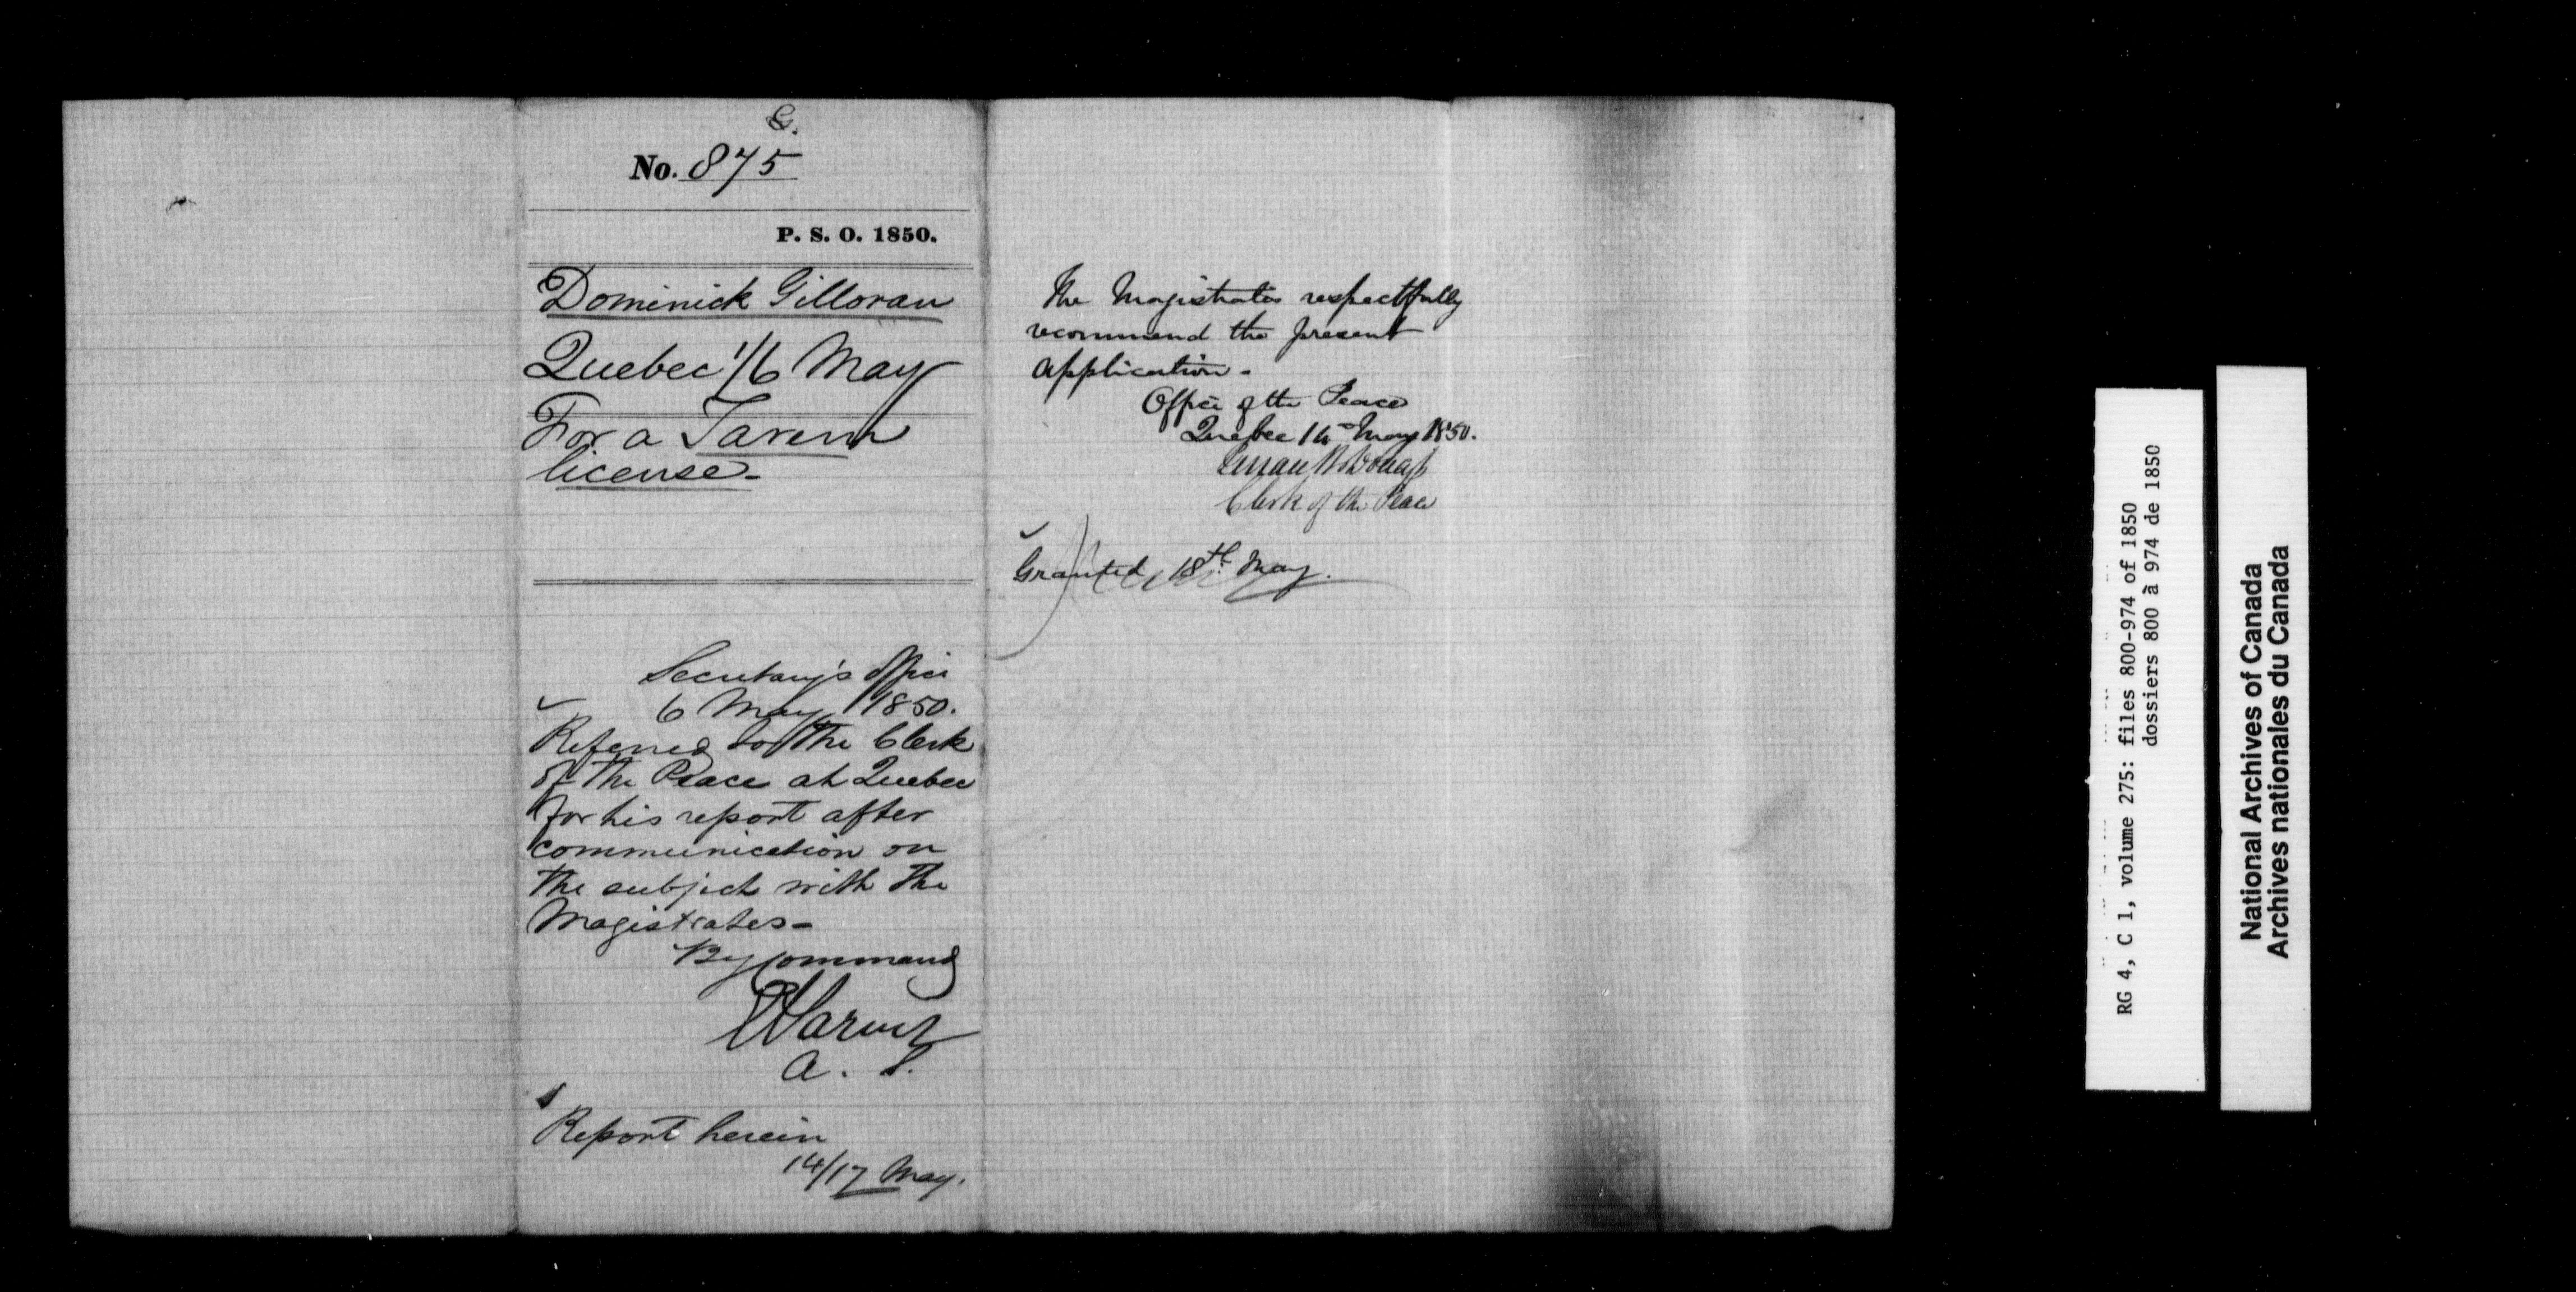 G.
No. 875
P. S. O. 1850.
Dominick Gilloran
Quebec 1/6 May
For a Tavern
license -
Secretary's Office
6 May 1850.
Referred to the Clerk
of the Peace at Quebec
for his report after
communication on
the subject with the
Magistrates -
By Command
A. S.
Report herein
14/17 May.
The Magistrates respectfully
recommend the present
application -
Office of the Peace
Quebec 14 May 1850.
Clerk of the Peace
Granted 18th May.
RG 4, C 1, volume 275: files 800-974 of 1850
dossiers 800 à 974 de 1850
National Archives of Canada
Archives nationales du Canada